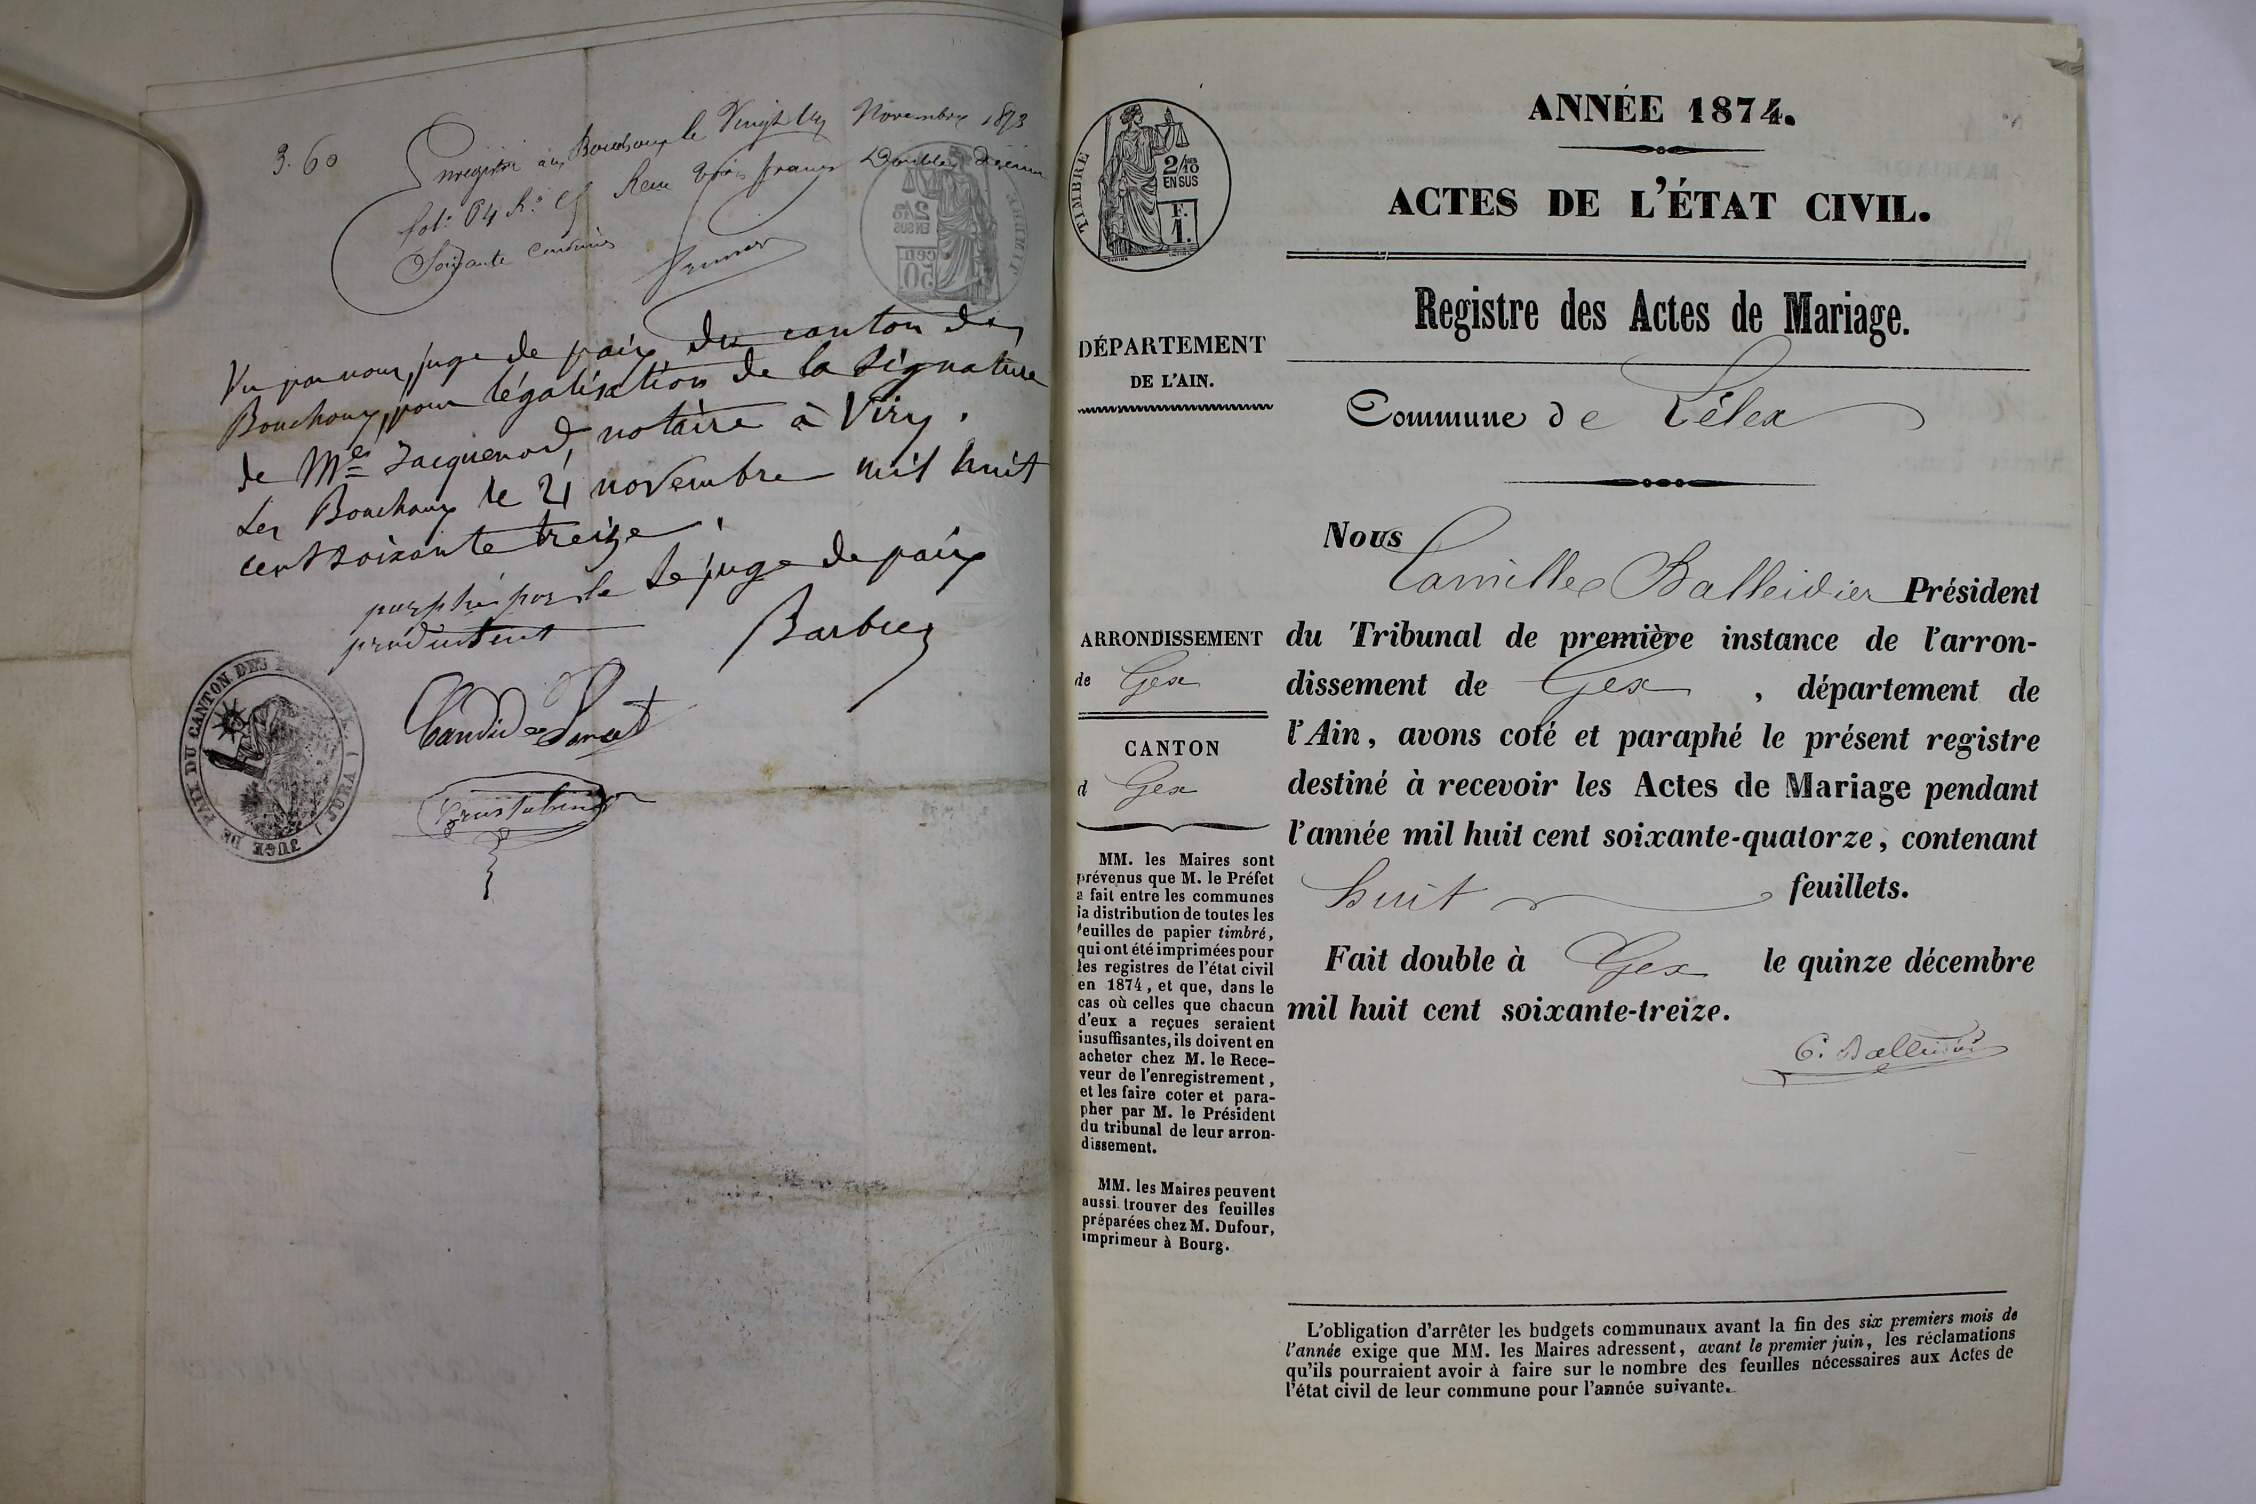 3.60
Enregistré aux Bouchoux le Vingt un Novembre 1873
fol. 64 R. C. Reçu trois francs Doubles Décimes
Soixante centimes
TIMBRE
2/10 ES
EN SUS
50 cen
Vu par nous, juge de paix du canton des
Bouchoux, pour légalisation de la signature
de Me Jacquenod, notaire à Viry.
Les Bouchoux le 21 novembre mil huit
cent soixante treize.
paraphé par le Le juge de paix
produisant
Barbier
JUGE DE PAIX DU CANTON DES BOUCHOUX (JURA)
ANNÉE 1874.
ACTES DE L'ÉTAT CIVIL.
TIMBRE
2/10 ES
EN SUS
F.
1.
Registre des Actes de Mariage.
DÉPARTEMENT
DE L'AIN.
Commune de Lélex
Nous
Camille Balleidier Président
du Tribunal de première instance de l'arron-
dissement de Gex , département de
l'Ain, avons coté et paraphé le présent registre
destiné à recevoir les Actes de Mariage pendant
l'année mil huit cent soixante-quatorze, contenant
huit feuillets.
Fait double à Gex le quinze décembre
mil huit cent soixante-treize.
C. Balleidier
ARRONDISSEMENT
de Gex
CANTON
d Gex
MM. les Maires sont
prévenus que M. le Préfet
a fait entre les communes
la distribution de toutes les
feuilles de papier timbré,
qui ont été imprimées pour
les registres de l'état civil
en 1874, et que, dans le
cas où celles que chacun
d'eux a reçues seraient
insuffisantes, ils doivent en
acheter chez M. le Rece-
veur de l'enregistrement,
et les faire coter et para-
pher par M. le Président
du tribunal de leur arron-
dissement.
MM. les Maires peuvent
aussi trouver des feuilles
préparées chez M. Dufour,
imprimeur à Bourg.
L'obligation d'arrêter les budgets communaux avant la fin des six premiers mois de
l'année exige que MM. les Maires adressent, avant le premier juin, les réclamations
qu'ils pourraient avoir à faire sur le nombre des feuilles nécessaires aux Actes de
l'état civil de leur commune pour l'année suivante.